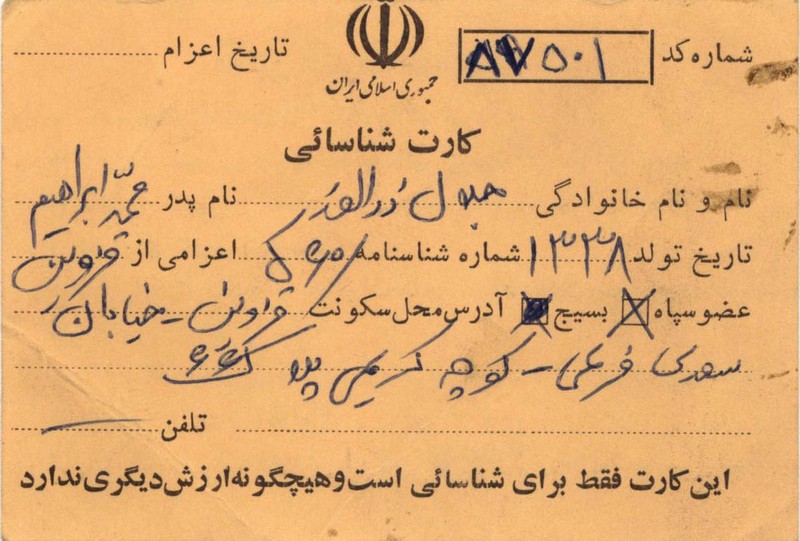 شماره کد ۸۷۵۰۱ تاریخ اعزام
جمهوری اسلامی ایران
کارت شناسائی
نام و نام خانوادگی جلال ذوالقدر نام پدر محمد ابراهیم
تاریخ تولد ۱۳۳۸ شماره شناسنامه اعزامی از قزوین
عضو سپاه بسیج آدرس محل سکونت قزوین - خیابان
سعدی فرعی - کوچه کریمی پلاک
تلفن —
این کارت فقط برای شناسائی است و هیچگونه ارزش دیگری ندارد